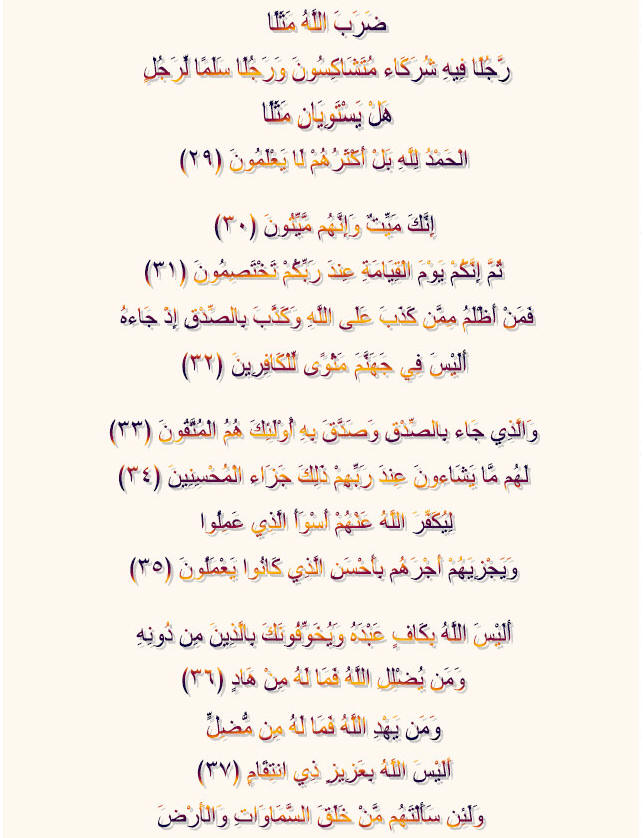 ضَرَبَ اللَّهُ مَثَلًا
رَّجُلًا فِيهِ شُرَكَاء مُتَشَاكِسُونَ وَرَجُلًا سَلَمًا لِّرَجُلٍ
هَلْ يَسْتَوِيَانِ مَثَلًا
الْحَمْدُ لِلَّهِ بَلْ أَكْثَرُهُمْ لَا يَعْلَمُونَ (٢٩)
إِنَّكَ مَيِّتٌ وَإِنَّهُم مَّيِّتُونَ (٣٠)
ثُمَّ إِنَّكُمْ يَوْمَ الْقِيَامَةِ عِندَ رَبِّكُمْ تَخْتَصِمُونَ (٣١)
فَمَنْ أَظْلَمُ مِمَّن كَذَبَ عَلَى اللَّهِ وَكَذَّبَ بِالصِّدْقِ إِذْ جَاءهُ
أَلَيْسَ فِي جَهَنَّمَ مَثْوًى لِّلْكَافِرِينَ (٣٢)
وَالَّذِي جَاء بِالصِّدْقِ وَصَدَّقَ بِهِ أُوْلَئِكَ هُمُ الْمُتَّقُونَ (٣٣)
لَهُم مَّا يَشَاءونَ عِندَ رَبِّهِمْ ذَلِكَ جَزَاء الْمُحْسِنِينَ (٣٤)
لِيُكَفِّرَ اللَّهُ عَنْهُمْ أَسْوَأَ الَّذِي عَمِلُوا
وَيَجْزِيَهُمْ أَجْرَهُم بِأَحْسَنِ الَّذِي كَانُوا يَعْمَلُونَ (٣٥)
أَلَيْسَ اللَّهُ بِكَافٍ عَبْدَهُ وَيُخَوِّفُونَكَ بِالَّذِينَ مِن دُونِهِ
وَمَن يُضْلِلِ اللَّهُ فَمَا لَهُ مِنْ هَادٍ (٣٦)
وَمَن يَهْدِ اللَّهُ فَمَا لَهُ مِن مُّضِلٍّ
أَلَيْسَ اللَّهُ بِعَزِيزٍ ذِي انتِقَامٍ (٣٧)
وَلَئِن سَأَلْتَهُم مَّنْ خَلَقَ السَّمَاوَاتِ وَالْأَرْضَ